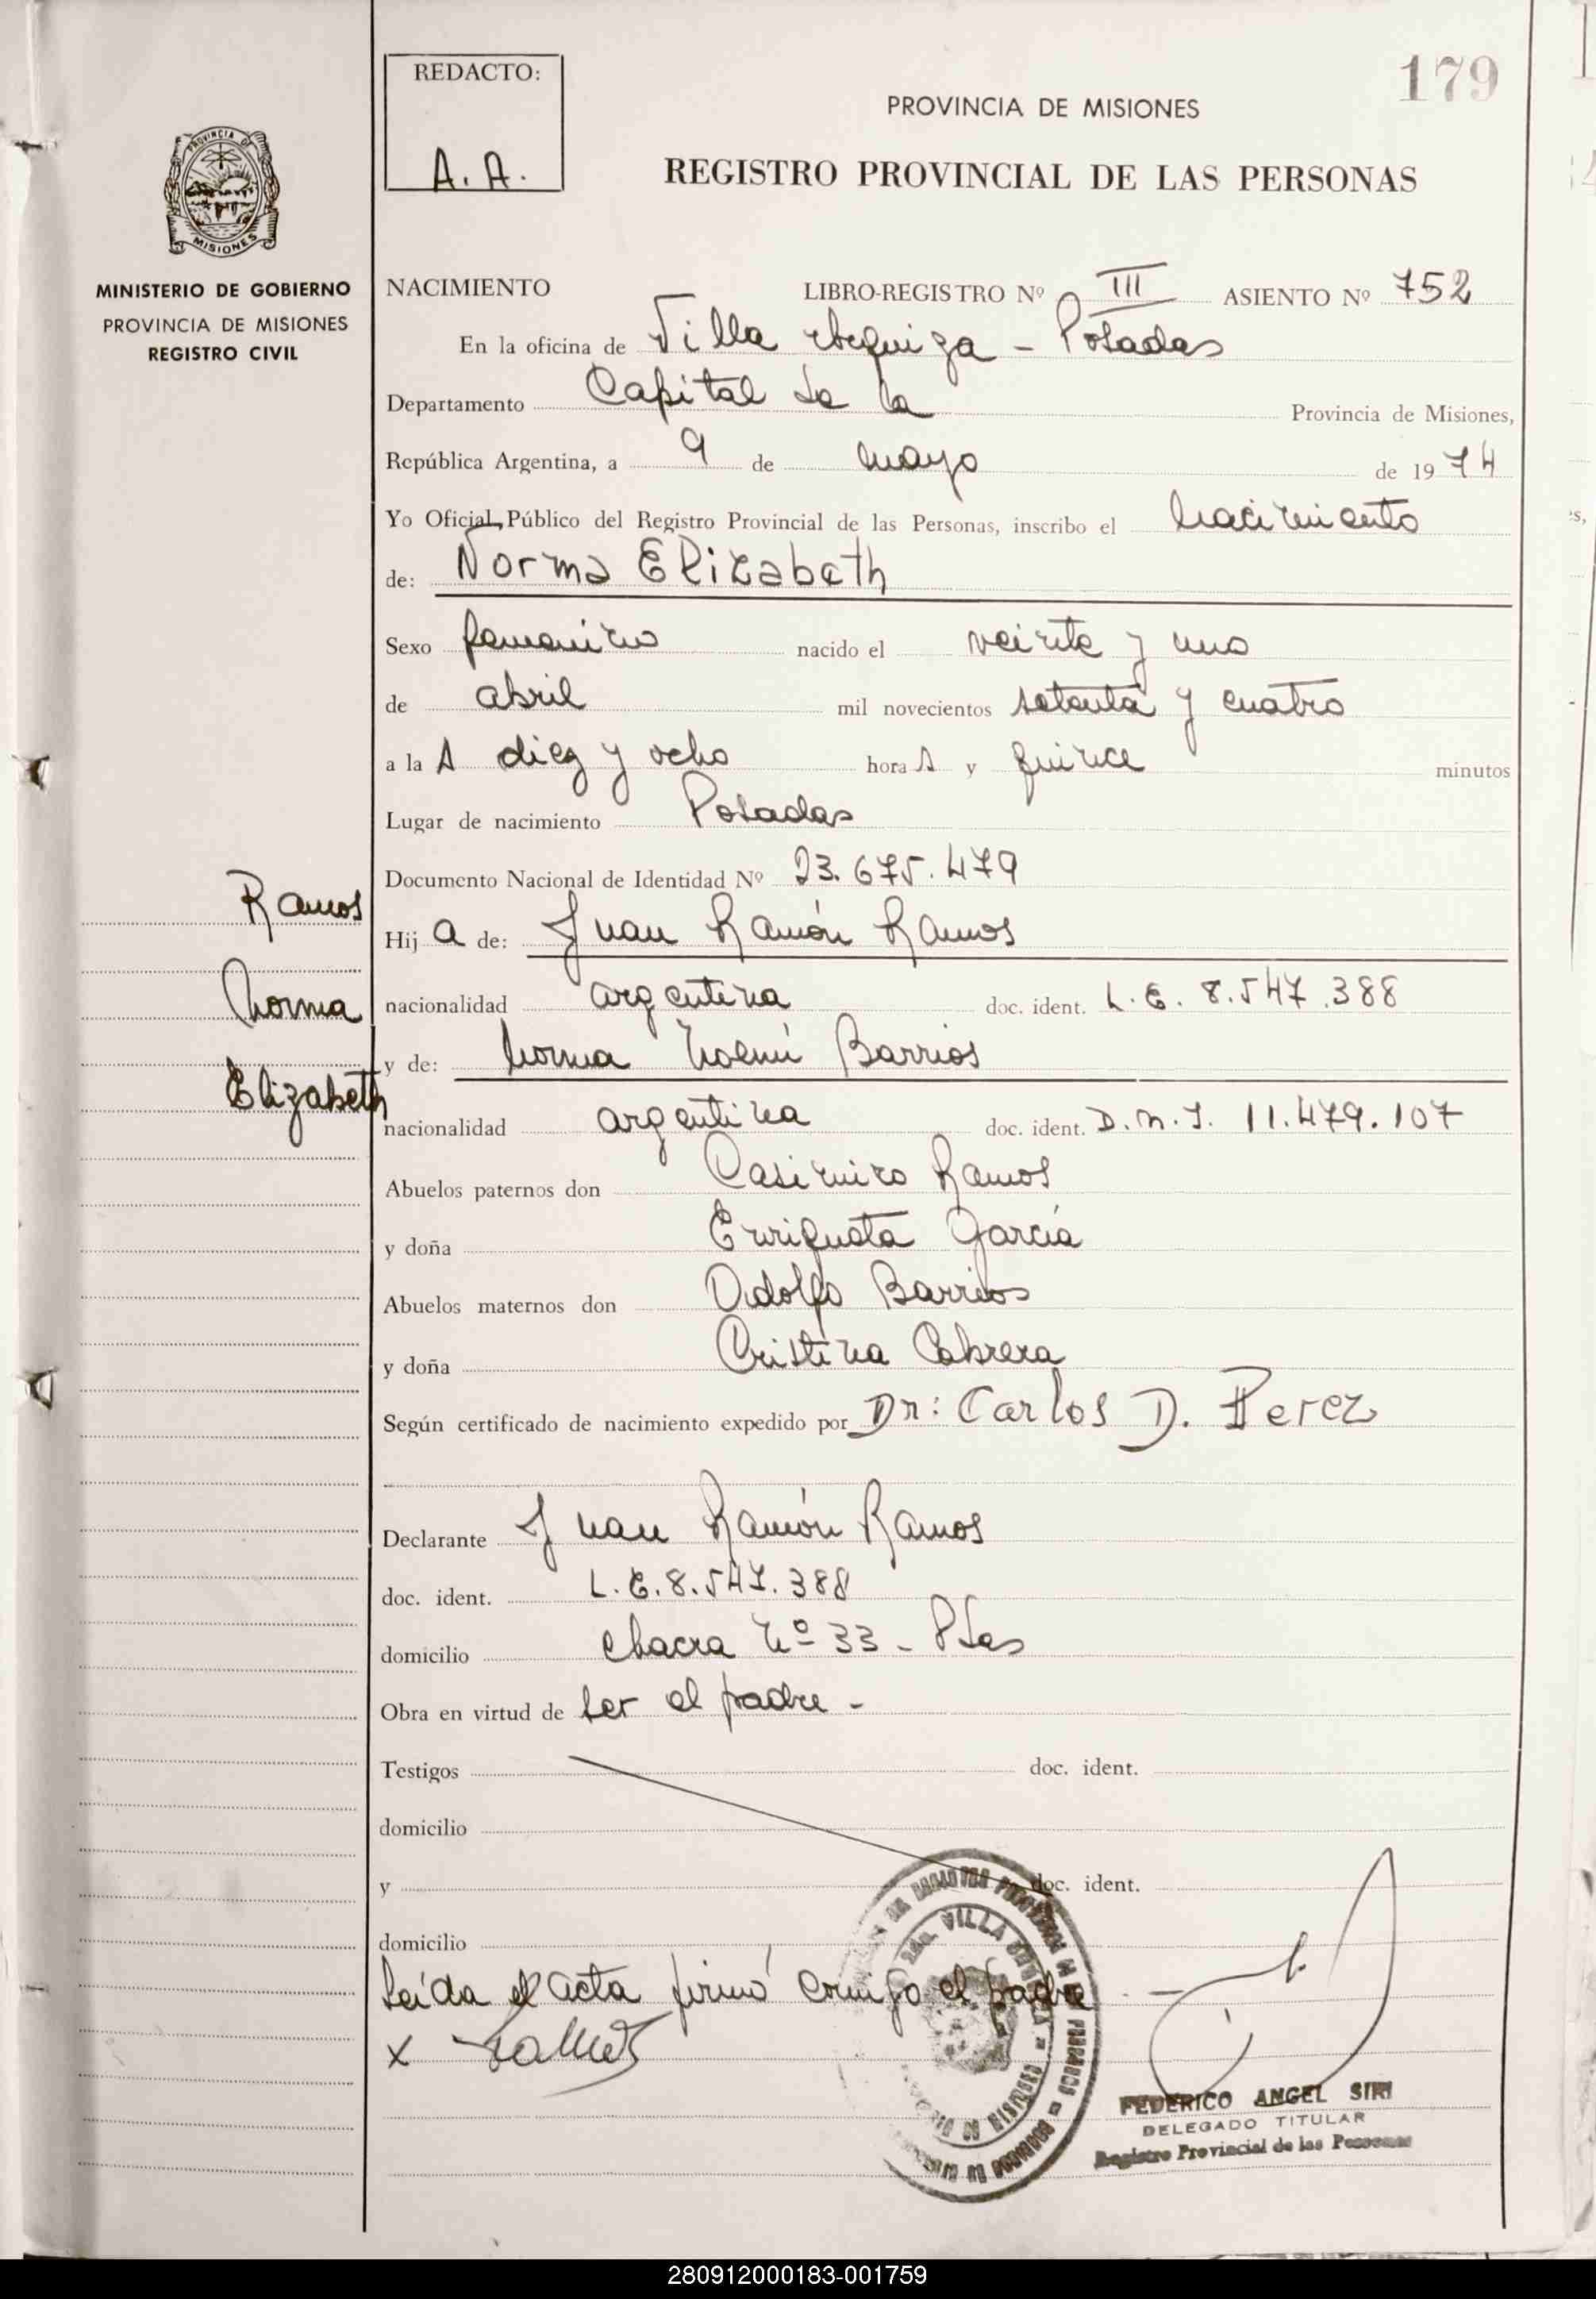 179
REDACTO:
A. A.
PROVINCIA DE MISIONES
REGISTRO PROVINCIAL DE LAS PERSONAS
PROVINCIA DE
MISIONES
MINISTERIO DE GOBIERNO
PROVINCIA DE MISIONES
REGISTRO CIVIL
NACIMIENTO LIBRO-REGISTRO Nº III ASIENTO Nº 752
En la oficina de Villa Urquiza - Posadas
Departamento Capital de la Provincia de Misiones,
República Argentina, a 9 de mayo de 1974
Yo Oficial Público del Registro Provincial de las Personas, inscribo el nacimiento
de: Norma Elizabeth
Sexo femenino nacido el veinte y uno
de abril mil novecientos setenta y cuatro
a las diez y ocho horas y quince minutos
Lugar de nacimiento Posadas
Documento Nacional de Identidad Nº 23.675.479
Ramos
Norma
Elizabeth
Hija de: Juan Ramón Ramos
nacionalidad argentina doc. ident. L.E. 8.547.388
y de: Norma Noemí Barrios
nacionalidad argentina doc. ident. D.N.I. 11.479.107
Abuelos paternos don Casimiro Ramos
y doña Enriqueta García
Abuelos maternos don Adolfo Barrios
y doña Cristina Cabrera
Según certificado de nacimiento expedido por Dr: Carlos D. Perez
Declarante Juan Ramón Ramos
doc. ident. L.E. 8.547.388
domicilio chacra Nº 33 - Pdas
Obra en virtud de ser el padre -
Testigos doc. ident.
domicilio
y doc. ident.
domicilio
Leída el acta firmó conmigo el padre
x Ramos
FEDERICO ANGEL SIRI
DELEGADO TITULAR
Registro Provincial de las Personas
280912000183-001759